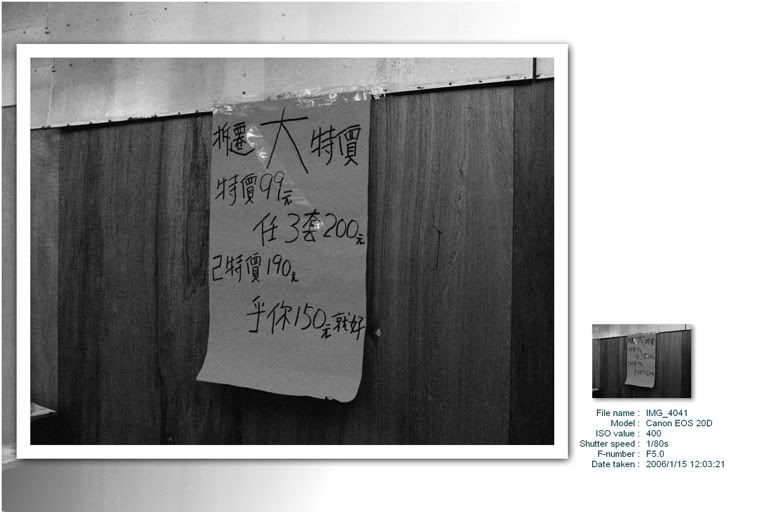 拆遷大特價
特價99元
任3套200元
己特價190元
乎你150元就好
File name : IMG_4041
Model : Canon EOS 20D
ISO value : 400
Shutter speed : 1/80s
F-number : F5.0
Date taken : 2006/1/15 12:03:21